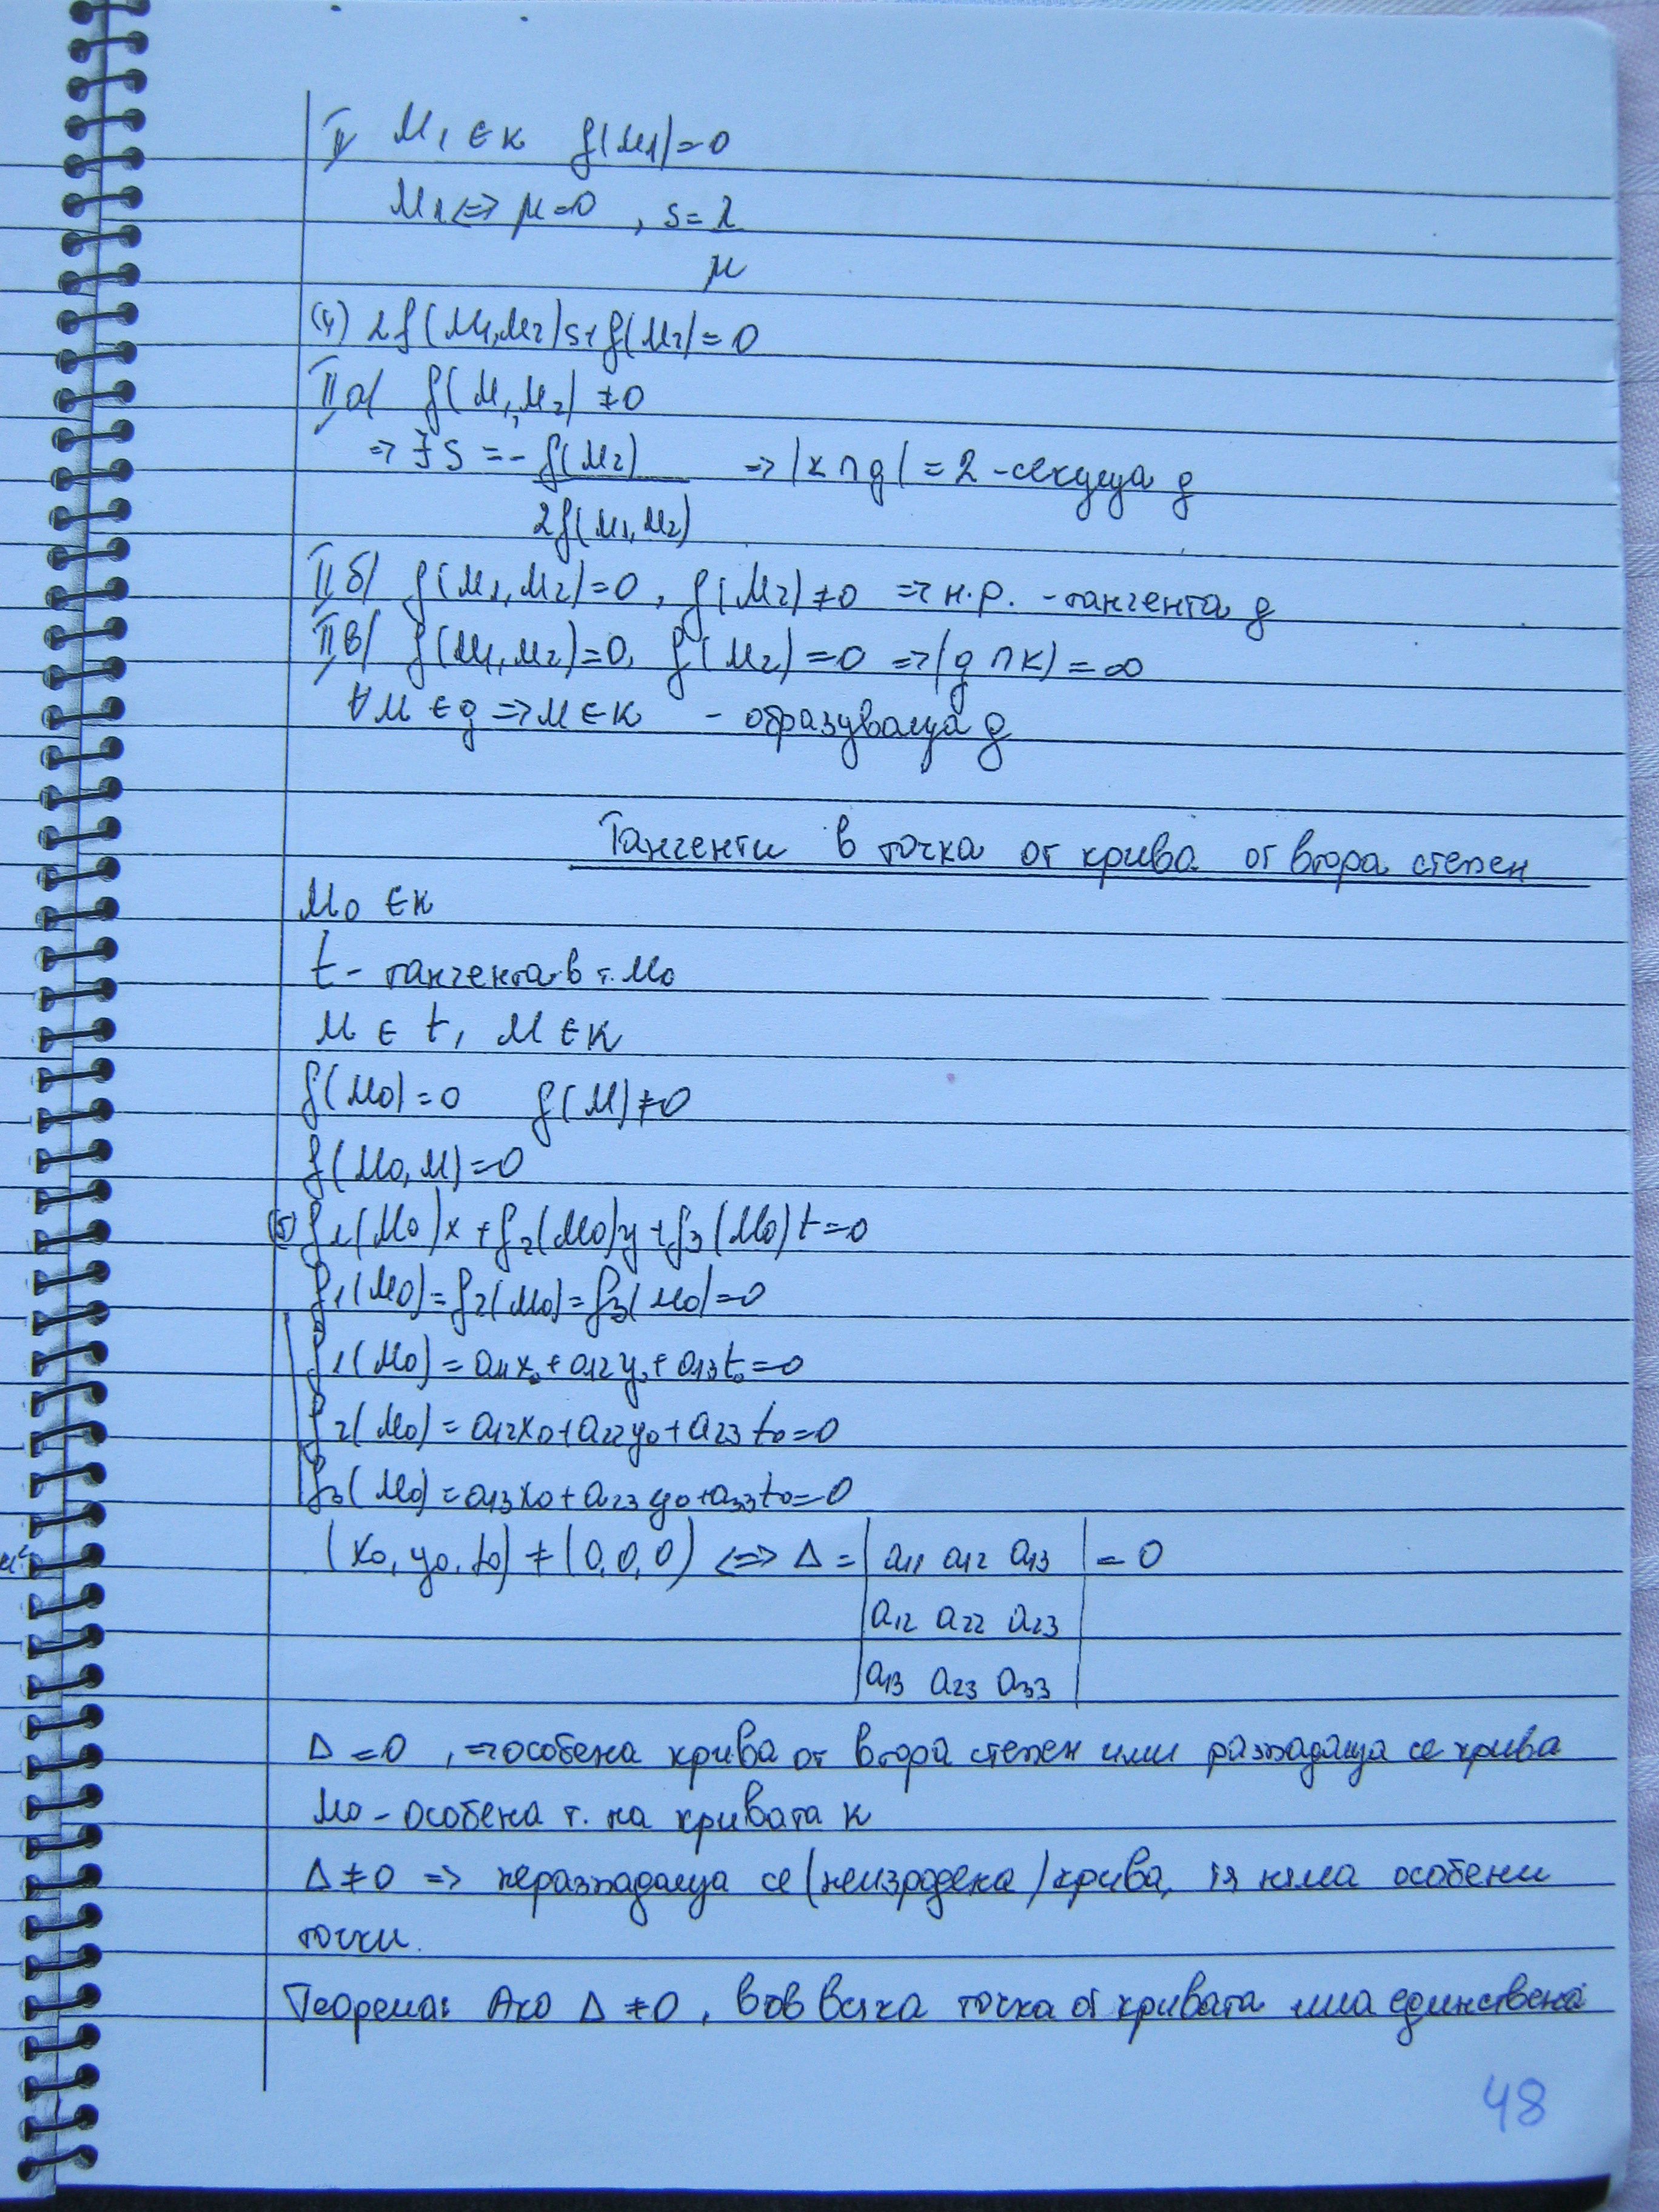 II M₁ ∈ k f(M₁)=0
M₁ <=> μ=0 , s= λ/μ
(4) 2f(M₁,M₂)s+f(M₂)=0
II а) f(M₁,M₂) ≠0
=> ∃ s = - f(M₂)/2f(M₁,M₂) => |k ∩ g| = 2 - секуща g
II б) f(M₁,M₂)=0, f(M₂) ≠0 => н.р. - тангента g
II в) f(M₁,M₂)=0, f(M₂)=0 => |g ∩ k| = ∞
∀M ∈ g => M ∈ k - образуваща g
Тангенти в точка от крива от втора степен
M₀ ∈ k
t - тангента в т. M₀
M ∈ t, M ∈ k
f(M₀)=0 f(M) ≠0
f(M₀,M)=0
(5) f₁(M₀)x + f₂(M₀)y + f₃(M₀)t=0
f₁(M₀)=f₂(M₀)=f₃(M₀)=0
f₁(M₀) = a₁₁x₀+a₁₂y₀+a₁₃t₀=0
f₂(M₀) = a₁₂x₀+a₂₂y₀+a₂₃t₀=0
f₃(M₀) = a₁₃x₀+a₂₃y₀+a₃₃t₀=0
(x₀,y₀,t₀) ≠ (0,0,0) <=> Δ = | a₁₁ a₁₂ a₁₃ | = 0
| a₁₂ a₂₂ a₂₃ |
| a₁₃ a₂₃ a₃₃ |
Δ=0 , => особена крива от втора степен или разпадаща се крива
M₀ - особена т. на кривата k
Δ≠0 => неразпадаща се (неизродена) крива, тя няма особени
точки.
Теорема: Ако Δ≠0, във всяка точка от кривата има единствена
48